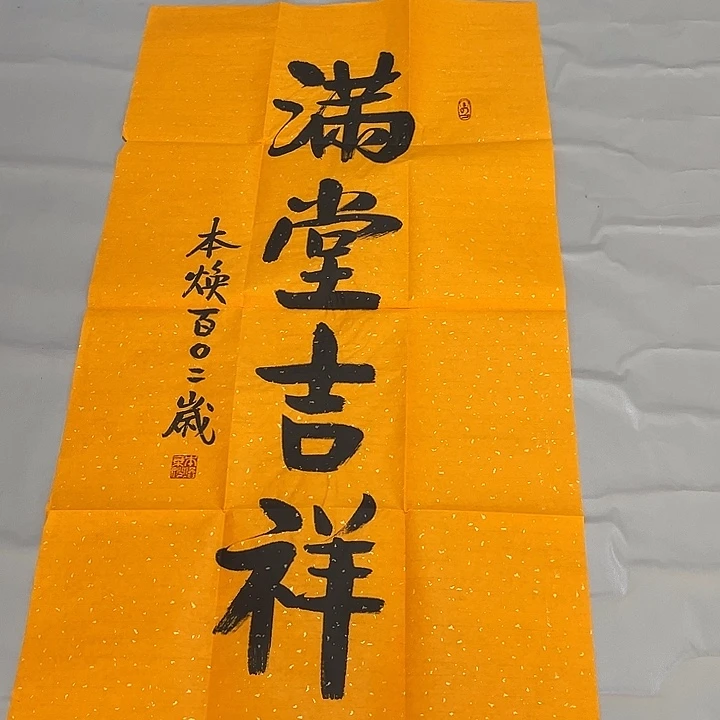 滿堂吉祥
本焕百〇二歲